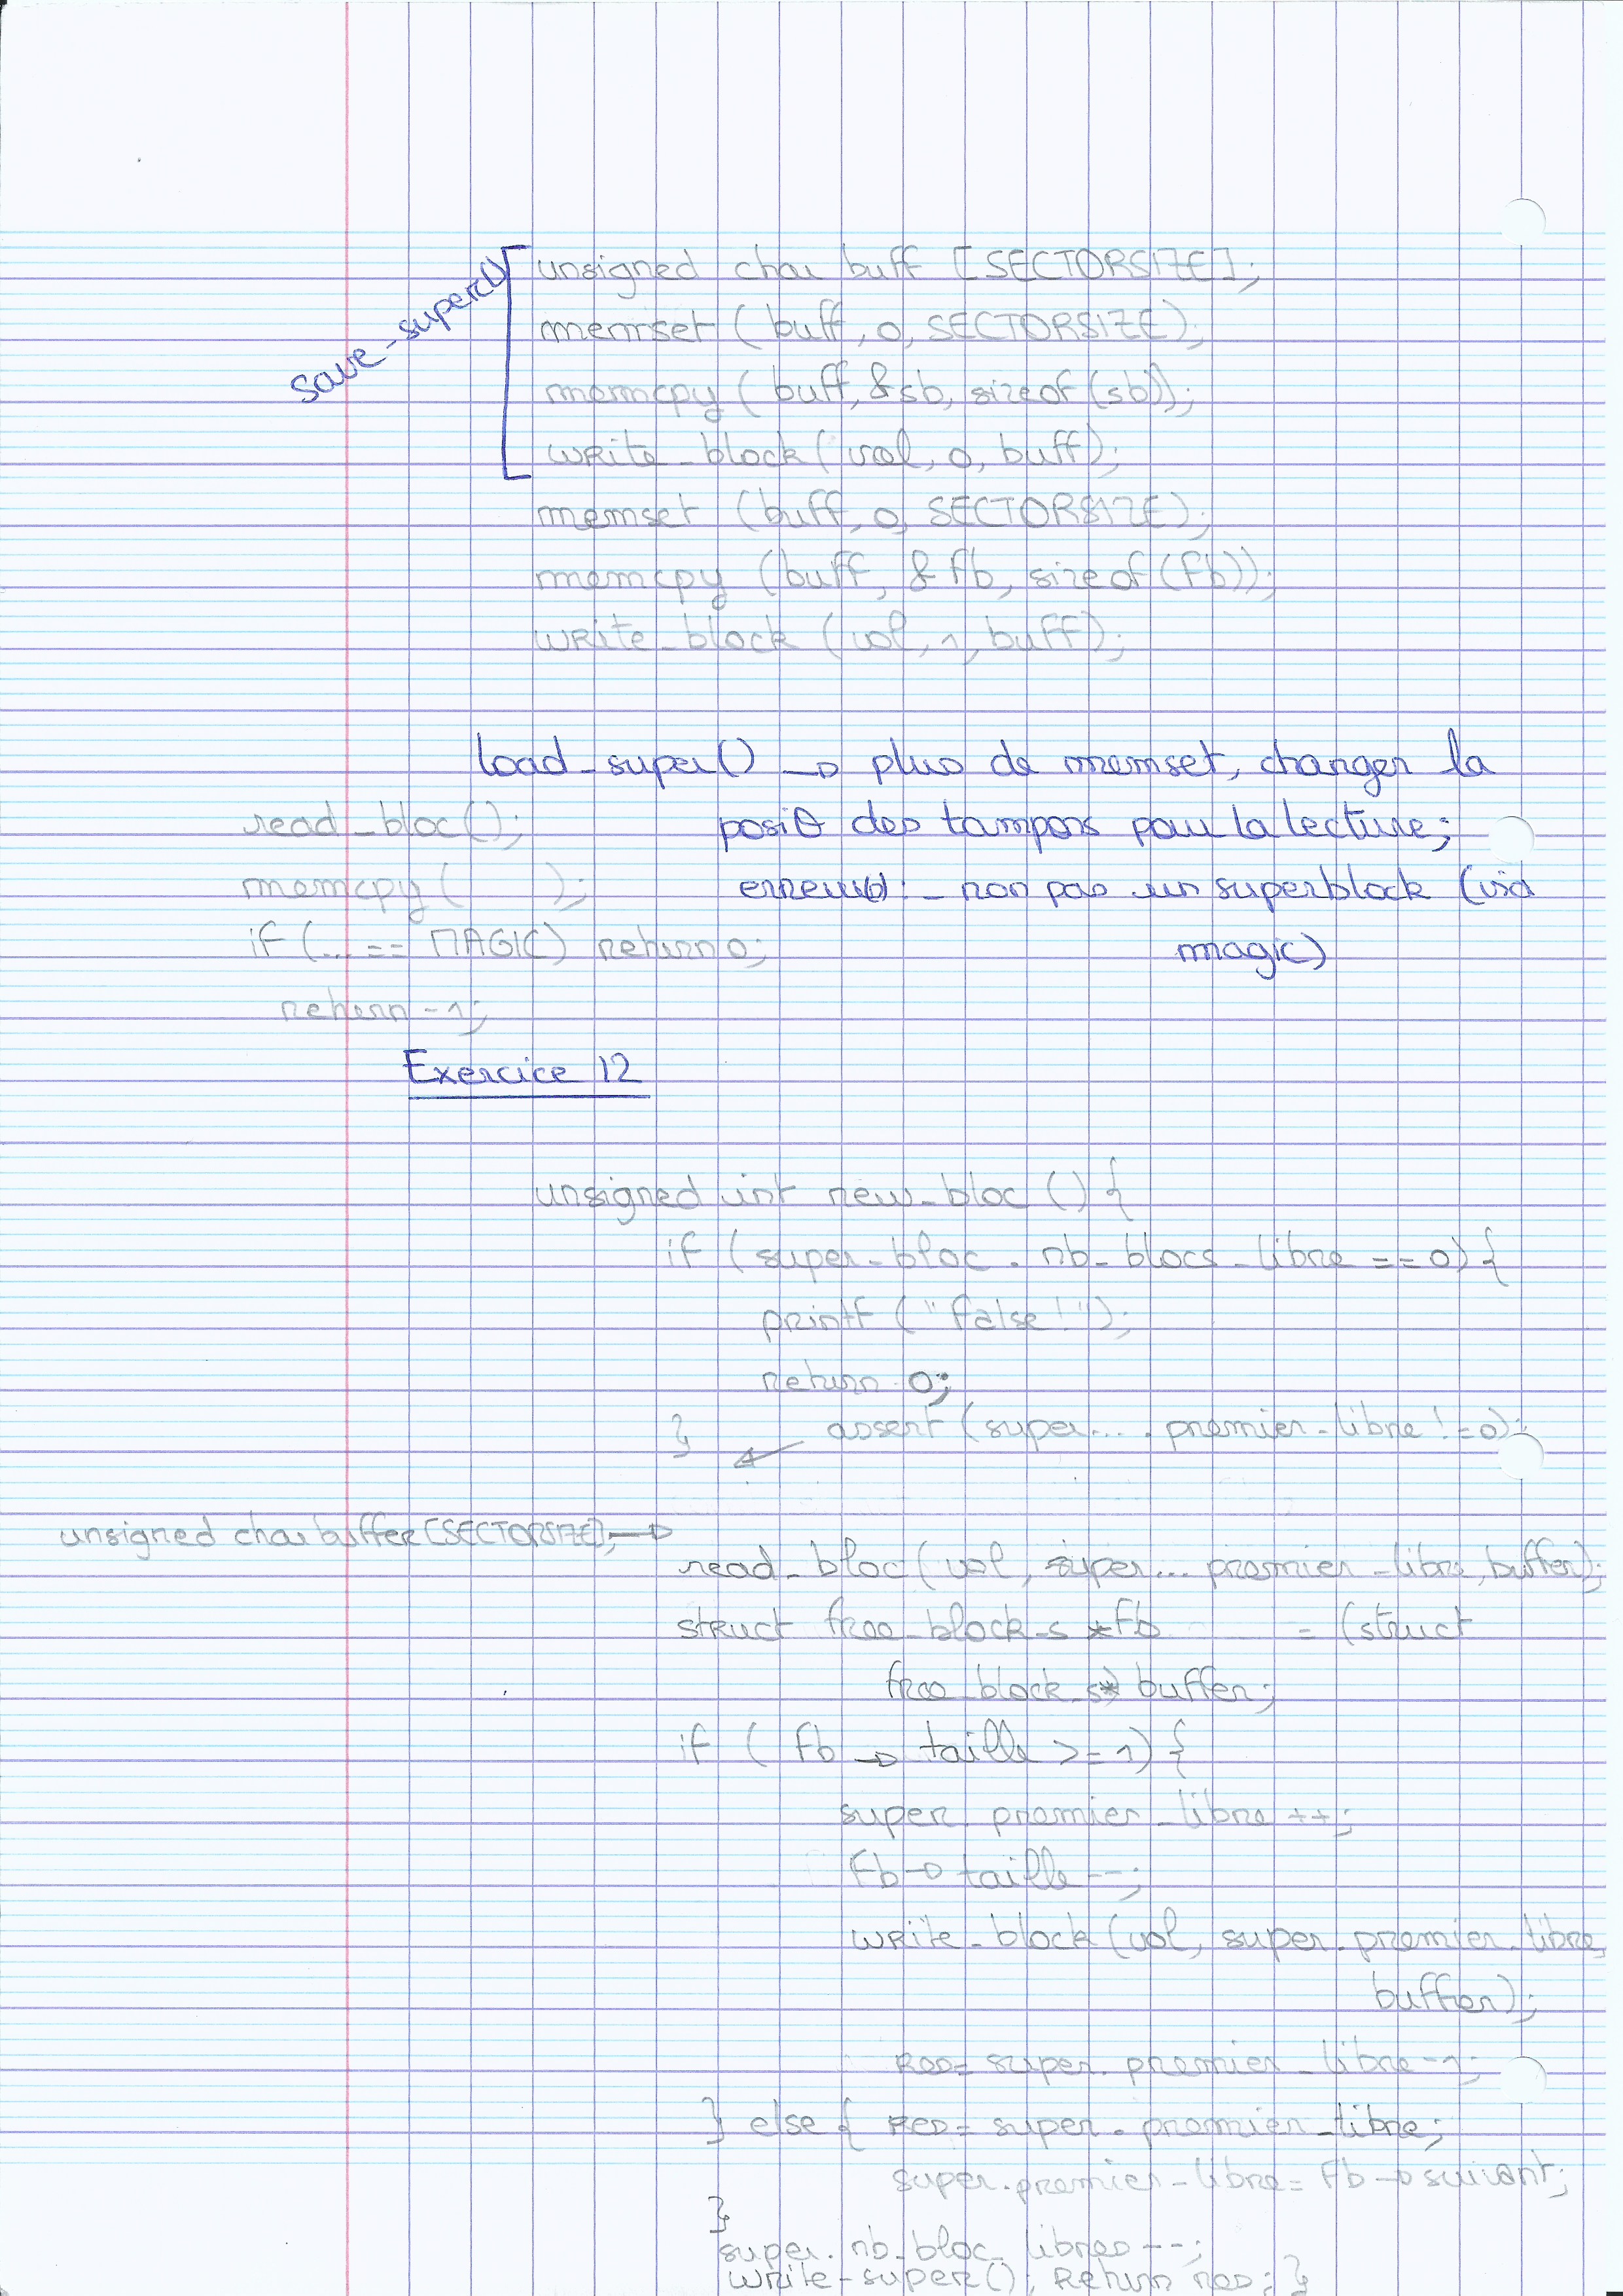 save_super()
unsigned char buff [SECTORSIZE];
memset (buff, 0, SECTORSIZE);
memcpy (buff, &sb, sizeof (sb));
write_block (vol, 0, buff);
memset (buff, 0, SECTORSIZE);
memcpy (buff, &fb, sizeof (fb));
write_block (vol, 1, buff);
load_super() → plus de memset, changer la
posiθ des tampons pour la lecture;
erreur(s) : - non pas un superblock (via
magic)
read_bloc();
memcpy ( );
if (... == MAGIC) return 0;
return -1;
Exercice 12
unsigned int new_bloc () {
if (super_bloc . nb_blocs_libre == 0) {
printf ("false!");
return 0;
} ← assert (super... . premier_libre != 0);
unsigned char buffer [SECTORSIZE]; →
read_bloc (vol, super... premier_libre, buffer);
struct free_block_s *fb = (struct
free_block_s*) buffer;
if ( fb → taille >= 1) {
super. premier_libre ++;
fb → taille --;
write_block (vol, super.premier_libre,
buffer);
res = super. premier_libre -1;
} else { res = super . premier_libre;
super.premier_libre = fb → suivant;
}
super. nb_bloc_libres --;
write_super(); return res; }